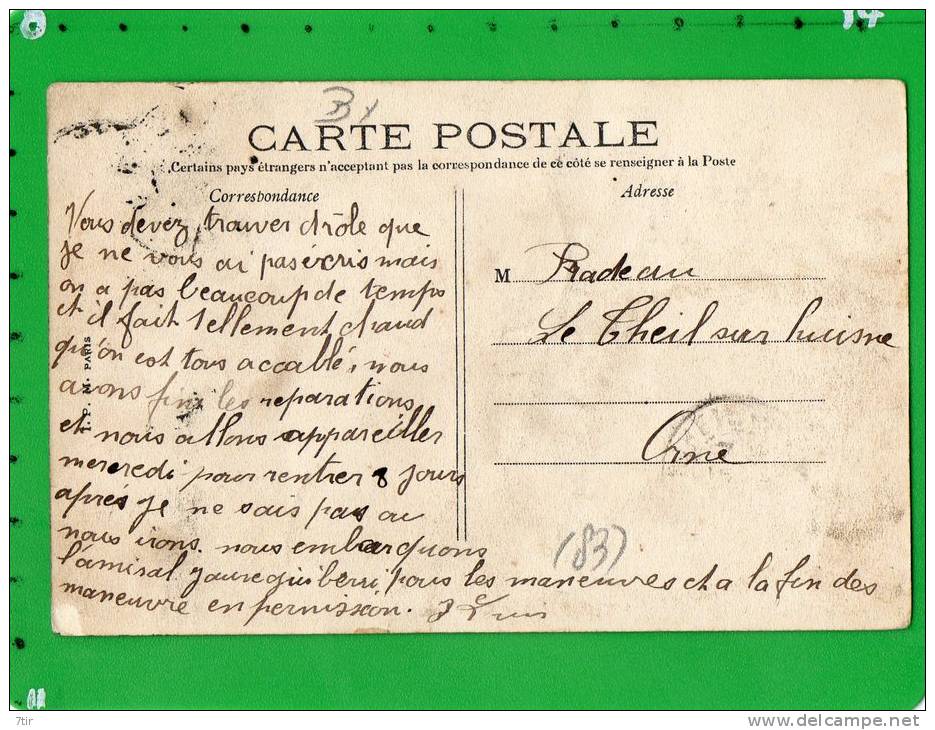 14
B
CARTE POSTALE
Certains pays étrangers n'acceptant pas la correspondance de ce côté se renseigner à la Poste
Correspondance
Adresse
Vous devez trouver drôle que
je ne vous ai pas écris mais
on a pas beaucoup de temps
et il fait tellement chaud
qu'on est tous accablé, nous
avons fini les reparations
et nous allons appareiller
mercredi pour rentrer 8 jours
après je ne sais pas ou
nous irons. nous embarquons
l'amiral Jaureguiberri pous les maneuvres et a la fin des
maneuvre en permission.
M Pradeau
Le Theil sur huisne
Orne
(83)
I. P. M. PARIS
7tir
www.delcampe.net